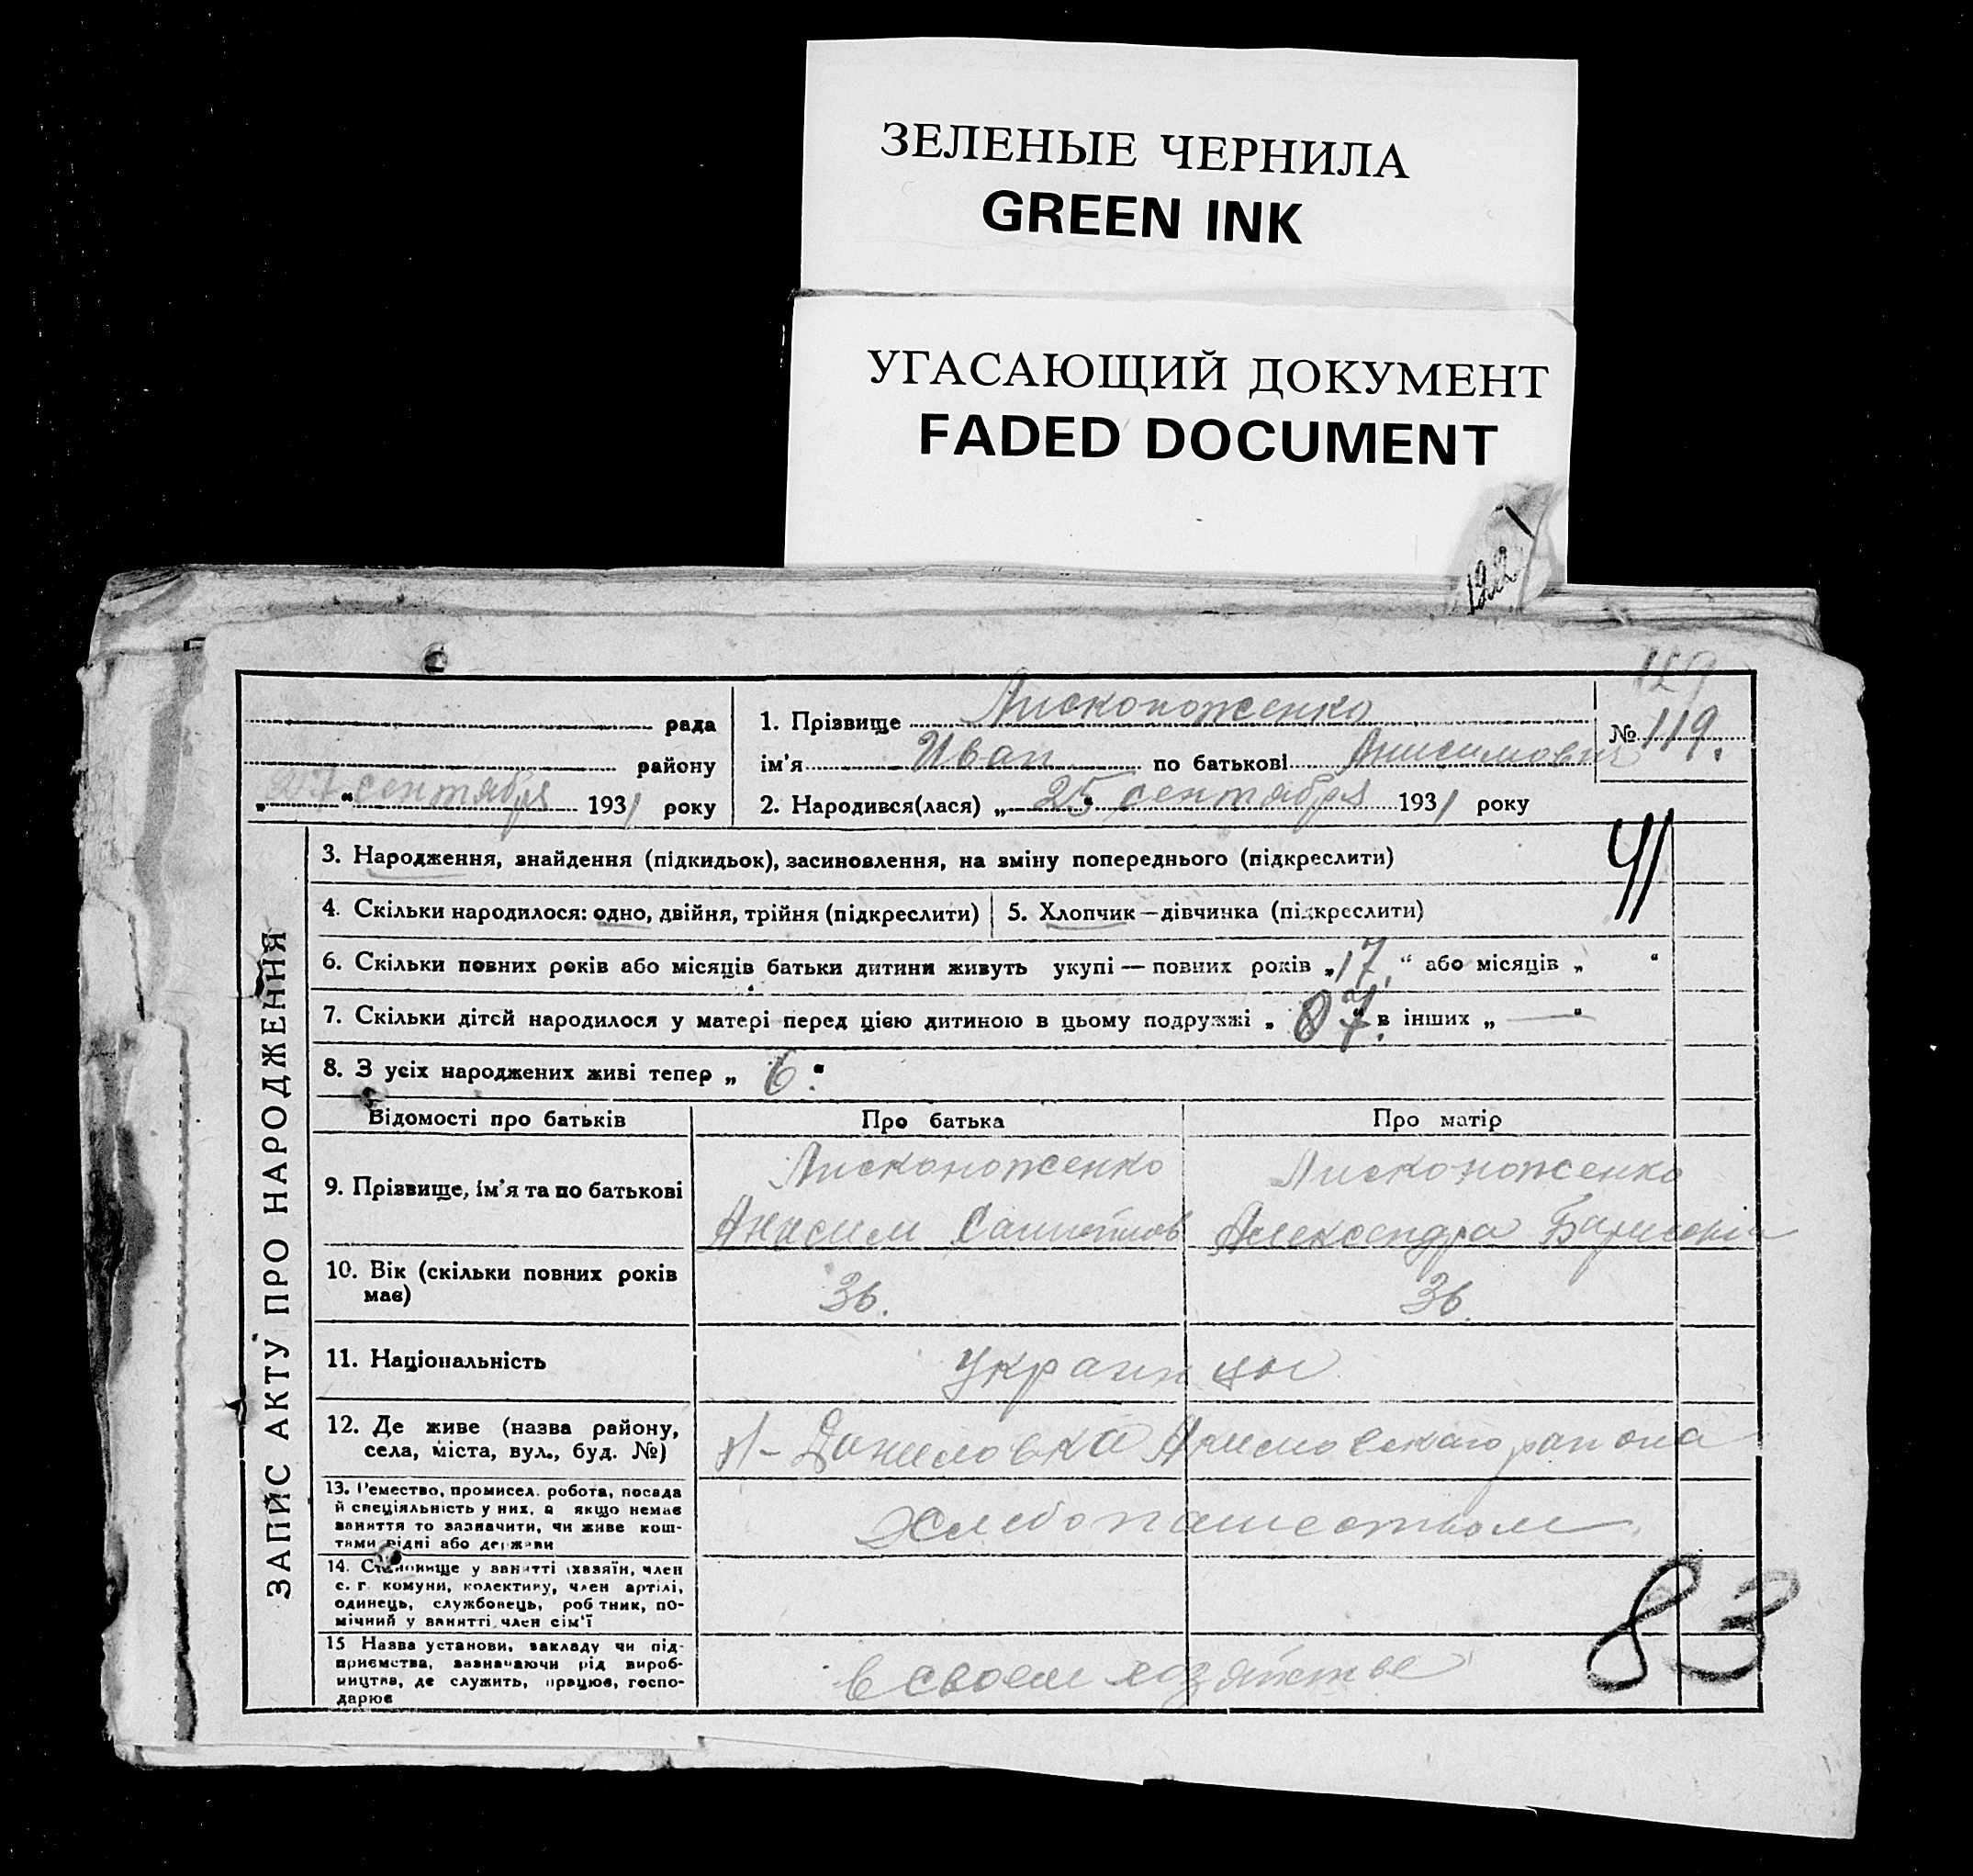 ЗЕЛЕНЫЕ ЧЕРНИЛА
GREEN INK
УГАСАЮЩИЙ ДОКУМЕНТ
FADED DOCUMENT
129
рада
району
„27“ сентября 1931 року
1. Прізвище Лисконоженко
ім'я Иван по батькові Анисимович
2. Народився(лася) „25“ сентября 1931 року
№ 119.
ЗАПИС АКТУ ПРО НАРОДЖЕННЯ
3. Народження, знайдення (підкидьок), засиновлення, на зміну попереднього (підкреслити)
4. Скільки народилося: одно, двійня, трійня (підкреслити)
5. Хлопчик—дівчинка (підкреслити)
6. Скільки повних років або місяців батьки дитини живуть укупі — повних років „17.“ або місяців „ “
7. Скільки дітей народилося у матері перед цією дитиною в цьому подружжі „ 7.“ в інших „—“
8. З усіх народжених живі тепер „6.“
Відомості про батьків Про батька Про матір
9. Прізвище, ім'я та по батькові
Лисконоженко Лисконоженко
Анисим Александра
10. Вік (скільки повних років має)
36. 36.
11. Національність
украинцы
12. Де живе (назва району, села, міста, вул., буд. №)
Даниловка Акимовскаго района
13. Ремество, промисел, робота, посада
й спеціяльність у них, а якщо немає
заняття то зазначити, чи живе кош-
тами рідні або держави
Хлебопашеством
14. Становище у занятті (хазяїн, член
с. г. комуни, колективу, член артілі,
одинець, службовець, робітник, по-
мічний у занятті член сім'ї
15 Назва установи, закладу чи під-
приємства, зазначаючи рід вироб-
ництва, де служить, працює, госпо-
дарює
в своем хозяйстве
83